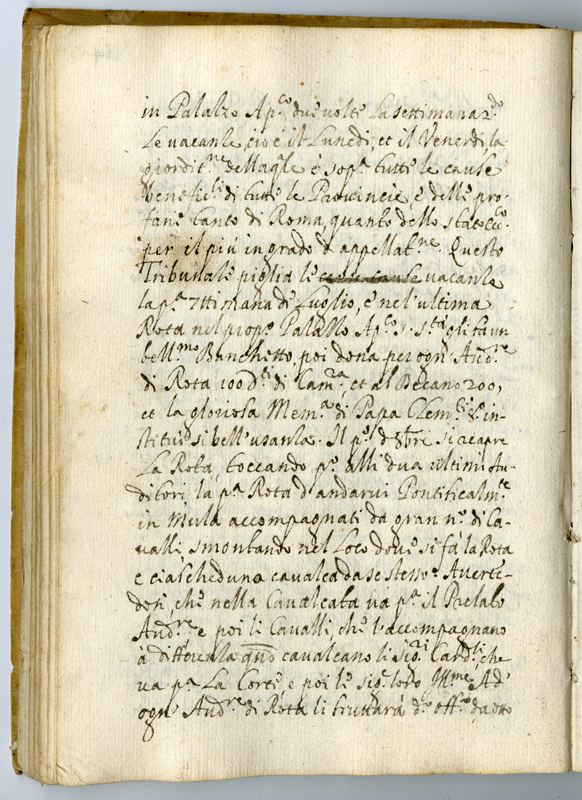 in Palazzo Ap.co due volte la settimana
Le vacanze cioè il Lunedì, et il Venerdì, la
giurdit.ne della q.le è sop.a tutte le cause
benefic.li di tutte le Provincie e delle pro-
fane tanto di Roma quanto dello stato Ecc.co
per il più in grado d'appellat.ne. Questo
Tribunale piglia le vacanze
la p.a 7ttimana di Luglio, e nel'ultima
Rota nel prop.o Palazzo Ap.co S. S.tà gli fà un
bell.mo Banchetto, poi dona per ogn' Aud.re
di Rota 100 d.ti di Cam.ra, et al Decano 200,
et la gloriosa Mem.a di Papa Clem.te 8.o in-
stituì sì bell'usanza. Il p.o d'8bre si reapre
La Rota toccando p.a alli dua ultimi Au-
ditori, la p.a Rota d'andarvi Pontificalm.te
in Mula accompagnati da gran n.o di Ca-
valli, smontando nel Loco dove si fà la Rota
e ciascheduno cavalca da se stesso. Averte-
dosi, che nella Cavalcata va p.a il Prelato
Aud.re e poi li Cavalli, che l'accompagnano
à differenza qndo cavalcano li sig.ri Card.li, che
va p.a La Corte, e poi le sig.e loro Ill.me Ad
ogn' Aud.re di Rota li fruttarà d.o off.o da otto